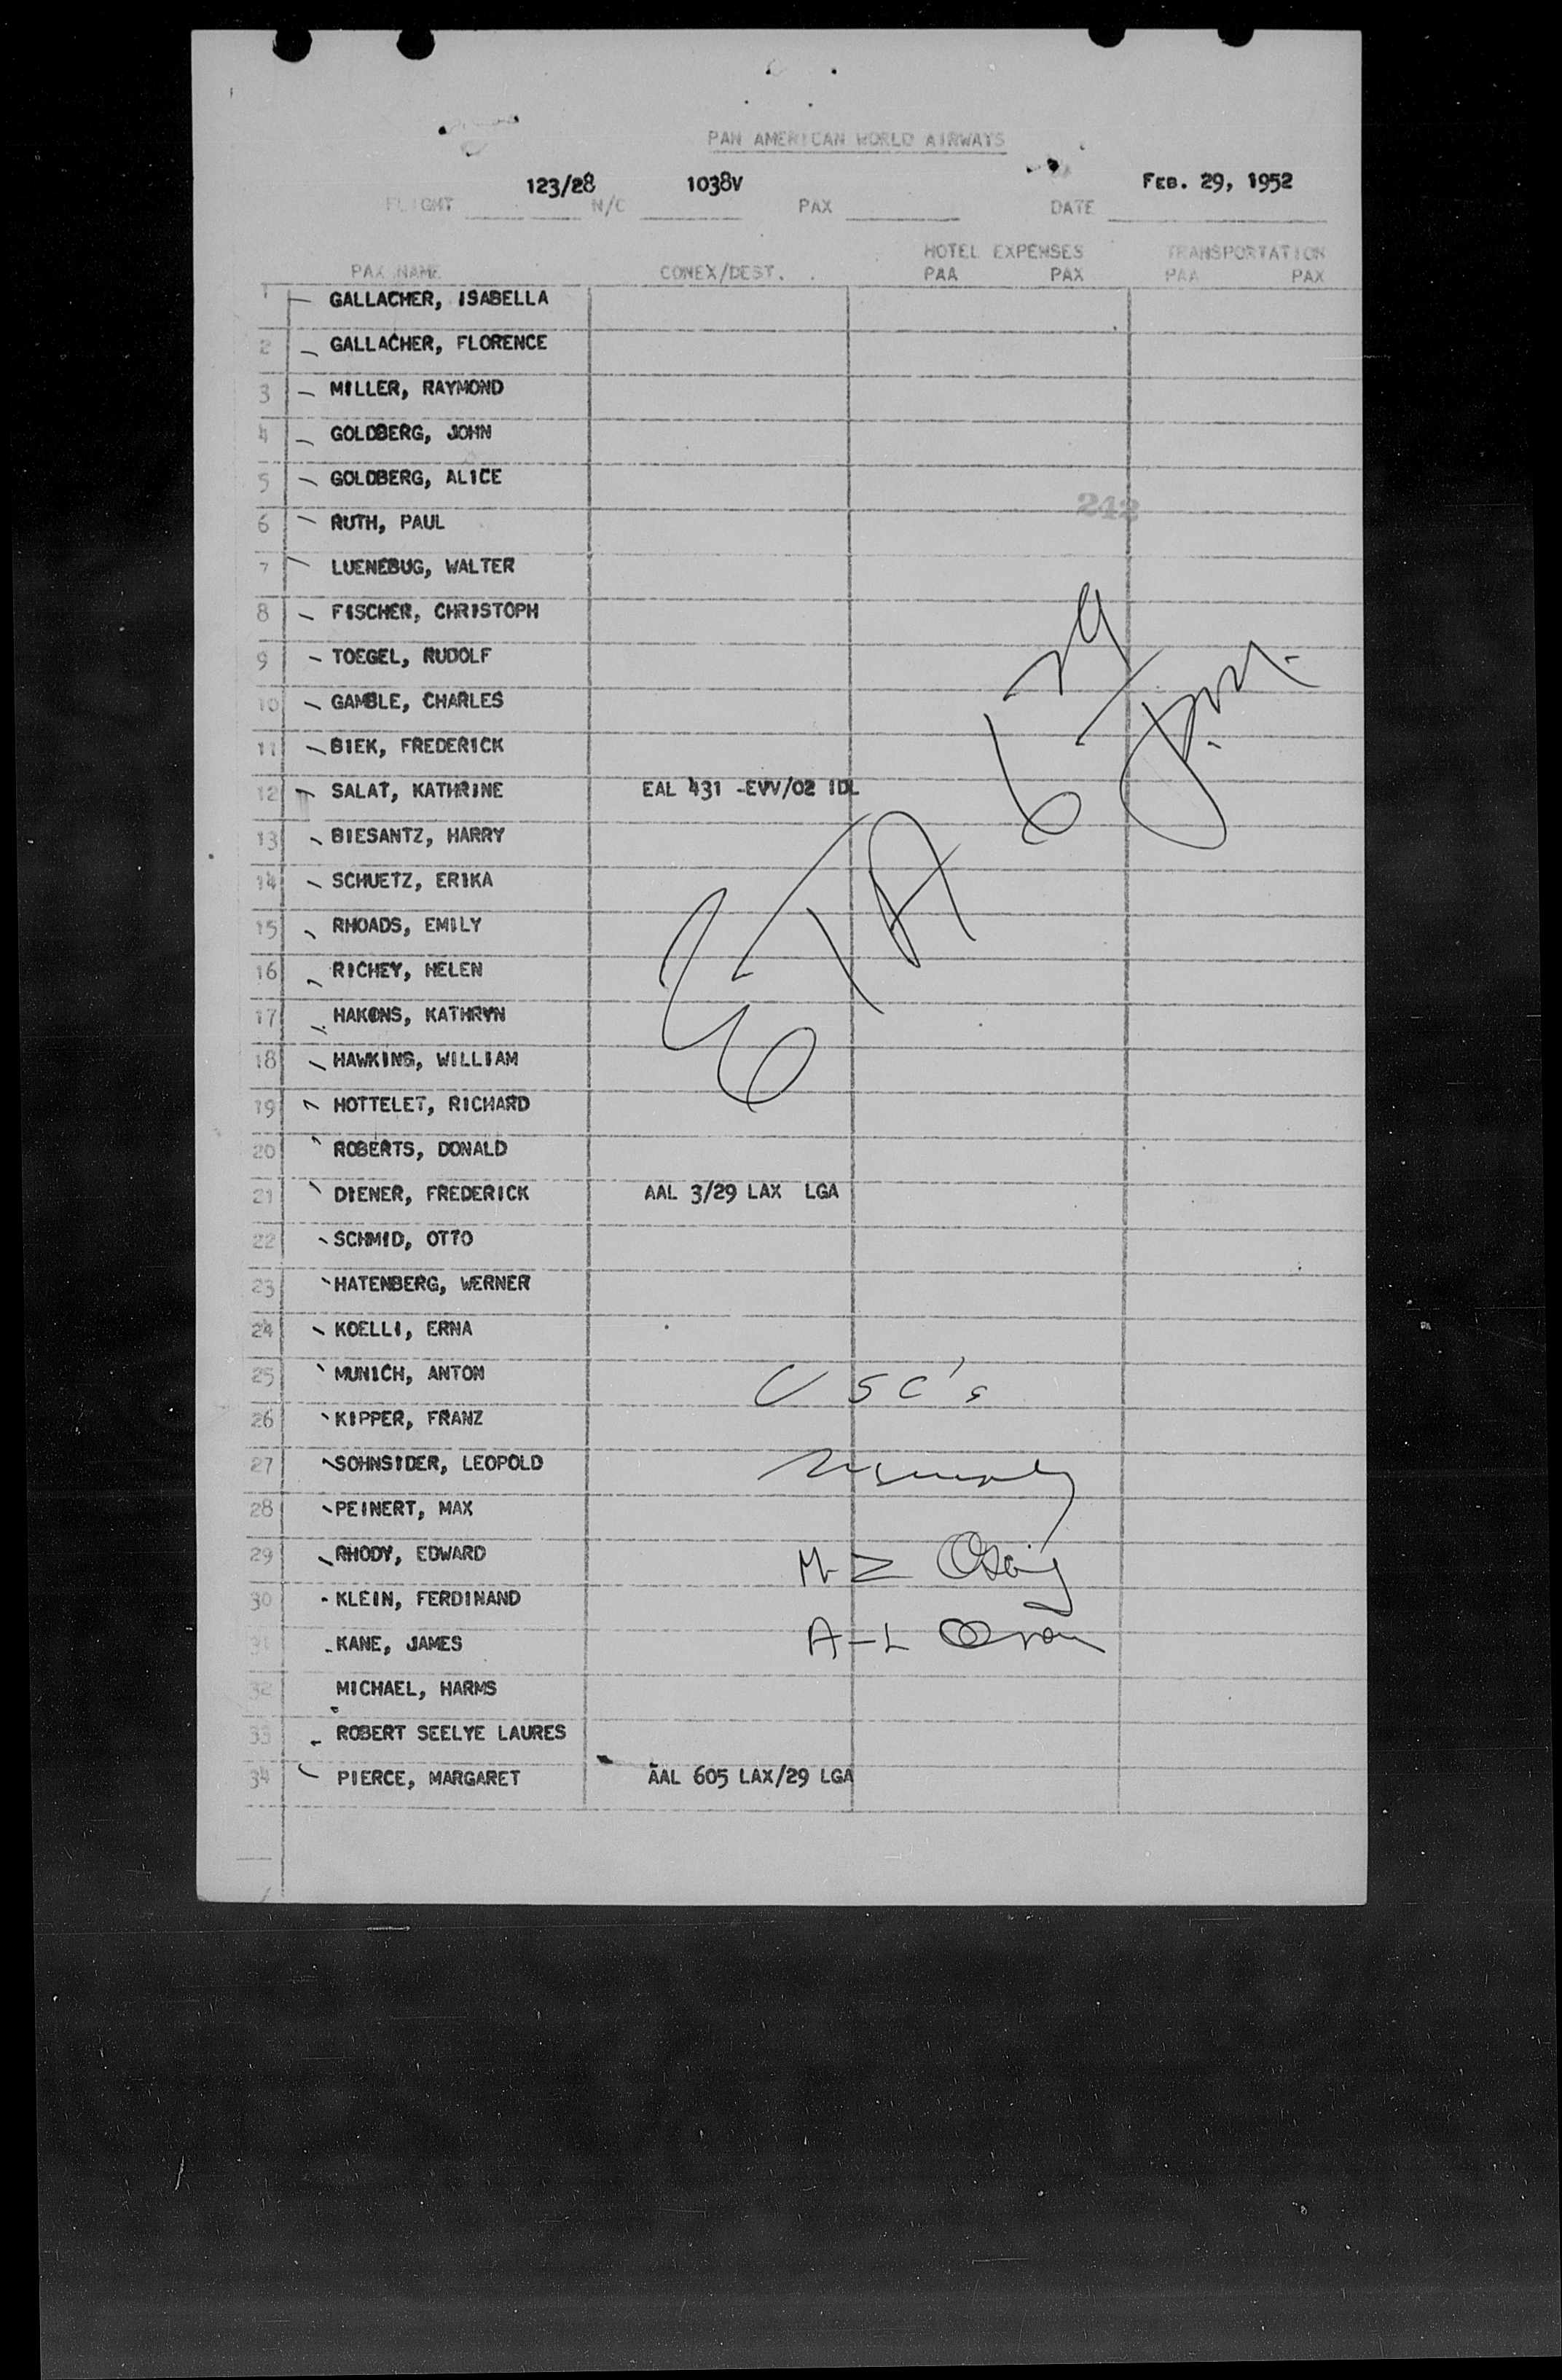 PAN AMERICAN WORLD AIRWAYS
123/28 1038V FEB. 29, 1952
FLIGHT N/C PAX DATE
HOTEL EXPENSES TRANSPORTATION
PAX NAME CONEX/DEST. PAA PAX PAA PAX
1 GALLACHER, ISABELLA
2 GALLACHER, FLORENCE
3 MILLER, RAYMOND
4 GOLDBERG, JOHN
5 GOLDBERG, ALICE
242
6 RUTH, PAUL
7 LUENEBUG, WALTER
8 FISCHER, CHRISTOPH
9 TOEGEL, RUDOLF
10 GAMBLE, CHARLES
11 BIEK, FREDERICK
12 SALAT, KATHRINE EAL 431 -EVV/02 IDL
13 BIESANTZ, HARRY
14 SCHUETZ, ERIKA
15 RHOADS, EMILY
16 RICHEY, HELEN
17 HAKONS, KATHRYN
18 HAWKING, WILLIAM
ETA 6 29 P.M.
19 HOTTELET, RICHARD
20 ROBERTS, DONALD
21 DIENER, FREDERICK AAL 3/29 LAX LGA
22 SCHMID, OTTO
23 HATENBERG, WERNER
24 KOELLI, ERNA
25 MUNICH, ANTON
USC's
26 KIPPER, FRANZ
27 SOHNSIDER, LEOPOLD
28 PEINERT, MAX
29 RHODY, EDWARD
M-Z
30 KLEIN, FERDINAND
31 KANE, JAMES
A-L
32 MICHAEL, HARMS
33 ROBERT SEELYE LAURES
34 PIERCE, MARGARET AAL 605 LAX/29 LGA